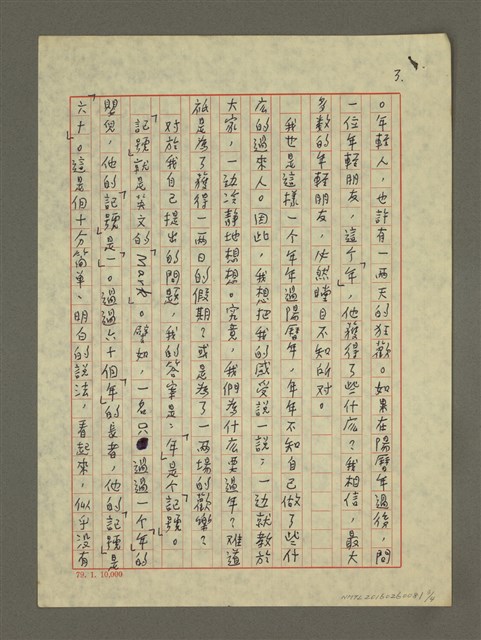 3.
。年輕人，也許有一兩天的狂歡。如果在陽曆年過後，問
一位年輕朋友，這个「年」，他獲得了些什庅？我相信，最大
多數的年輕朋友，必然瞠目不知所对。
我也是這樣一个年年過陽曆年，年年不知自己做了些什
庅的過來人。因此，我想把我的感受說一說；一边就教於
大家，一边冷靜地想想。究竟，我們為什庅要過年？难道
祇是為了獲得一兩日的假期？或是為了一兩場的歡樂？
对於我自己提出的問題，我的答案是：「年」是个「記號」。
「記號」就是英文的Mark。譬如，一名只過過一个「年」的
嬰兒，他的「記號」是「一」。過過六十個「年」的長者，他的「記號」是
「六十」。這是個十分簡單、明白的說法，看起來，似乎沒有
79.1.10,000